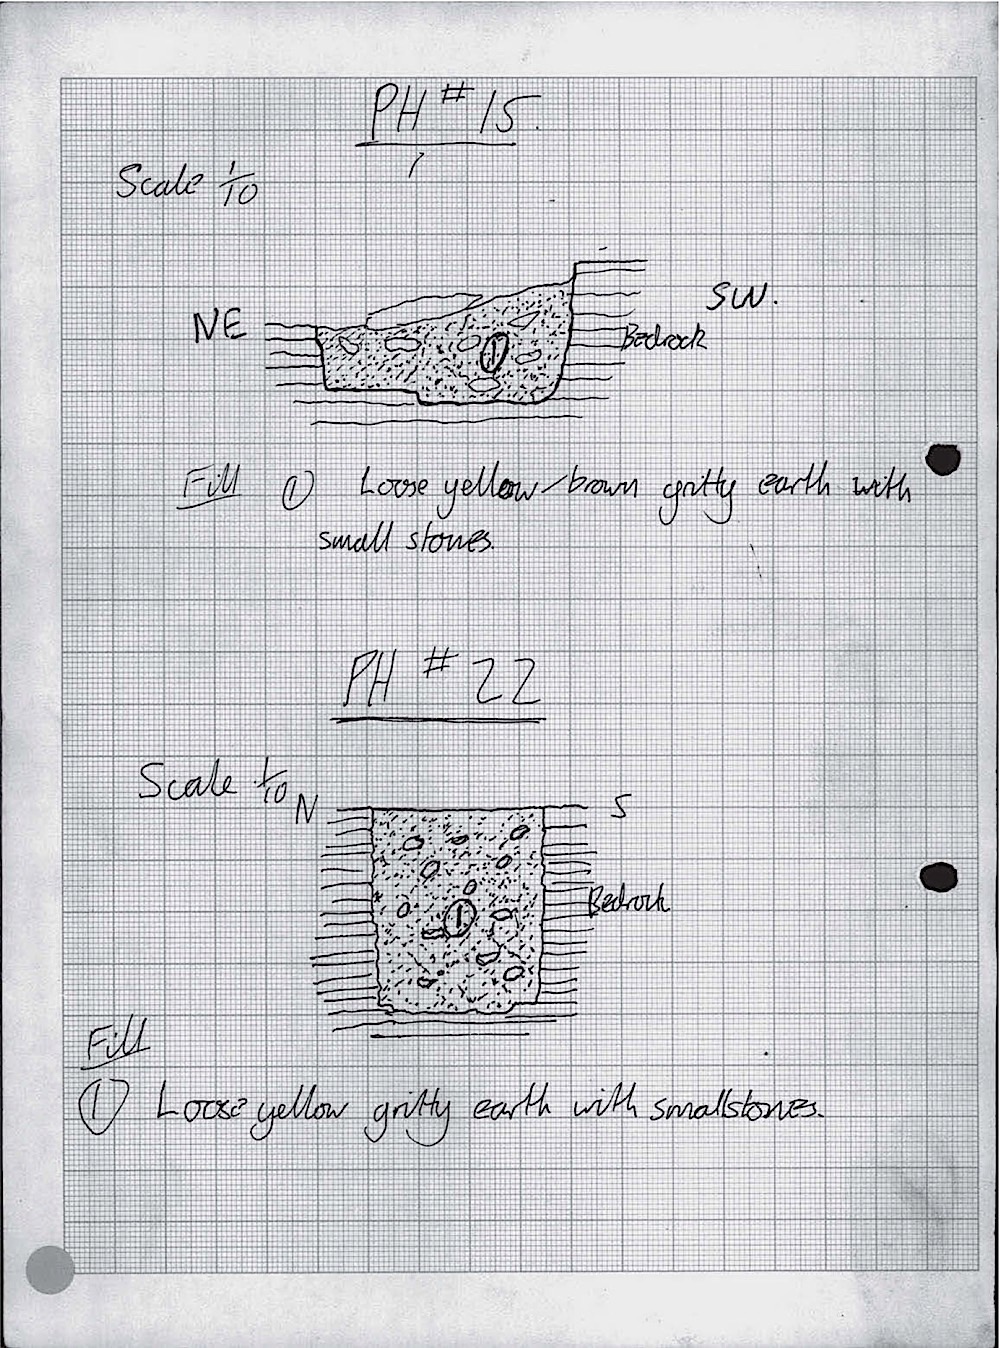 PH # 15.
Scale 1/10
NE
SW.
Bedrock
1
Fill ① Loose yellow/brown gritty earth with
small stones.
PH # 22
Scale 1/10
N
S
Bedrock
1
Fill
① Loose yellow gritty earth with small stones.